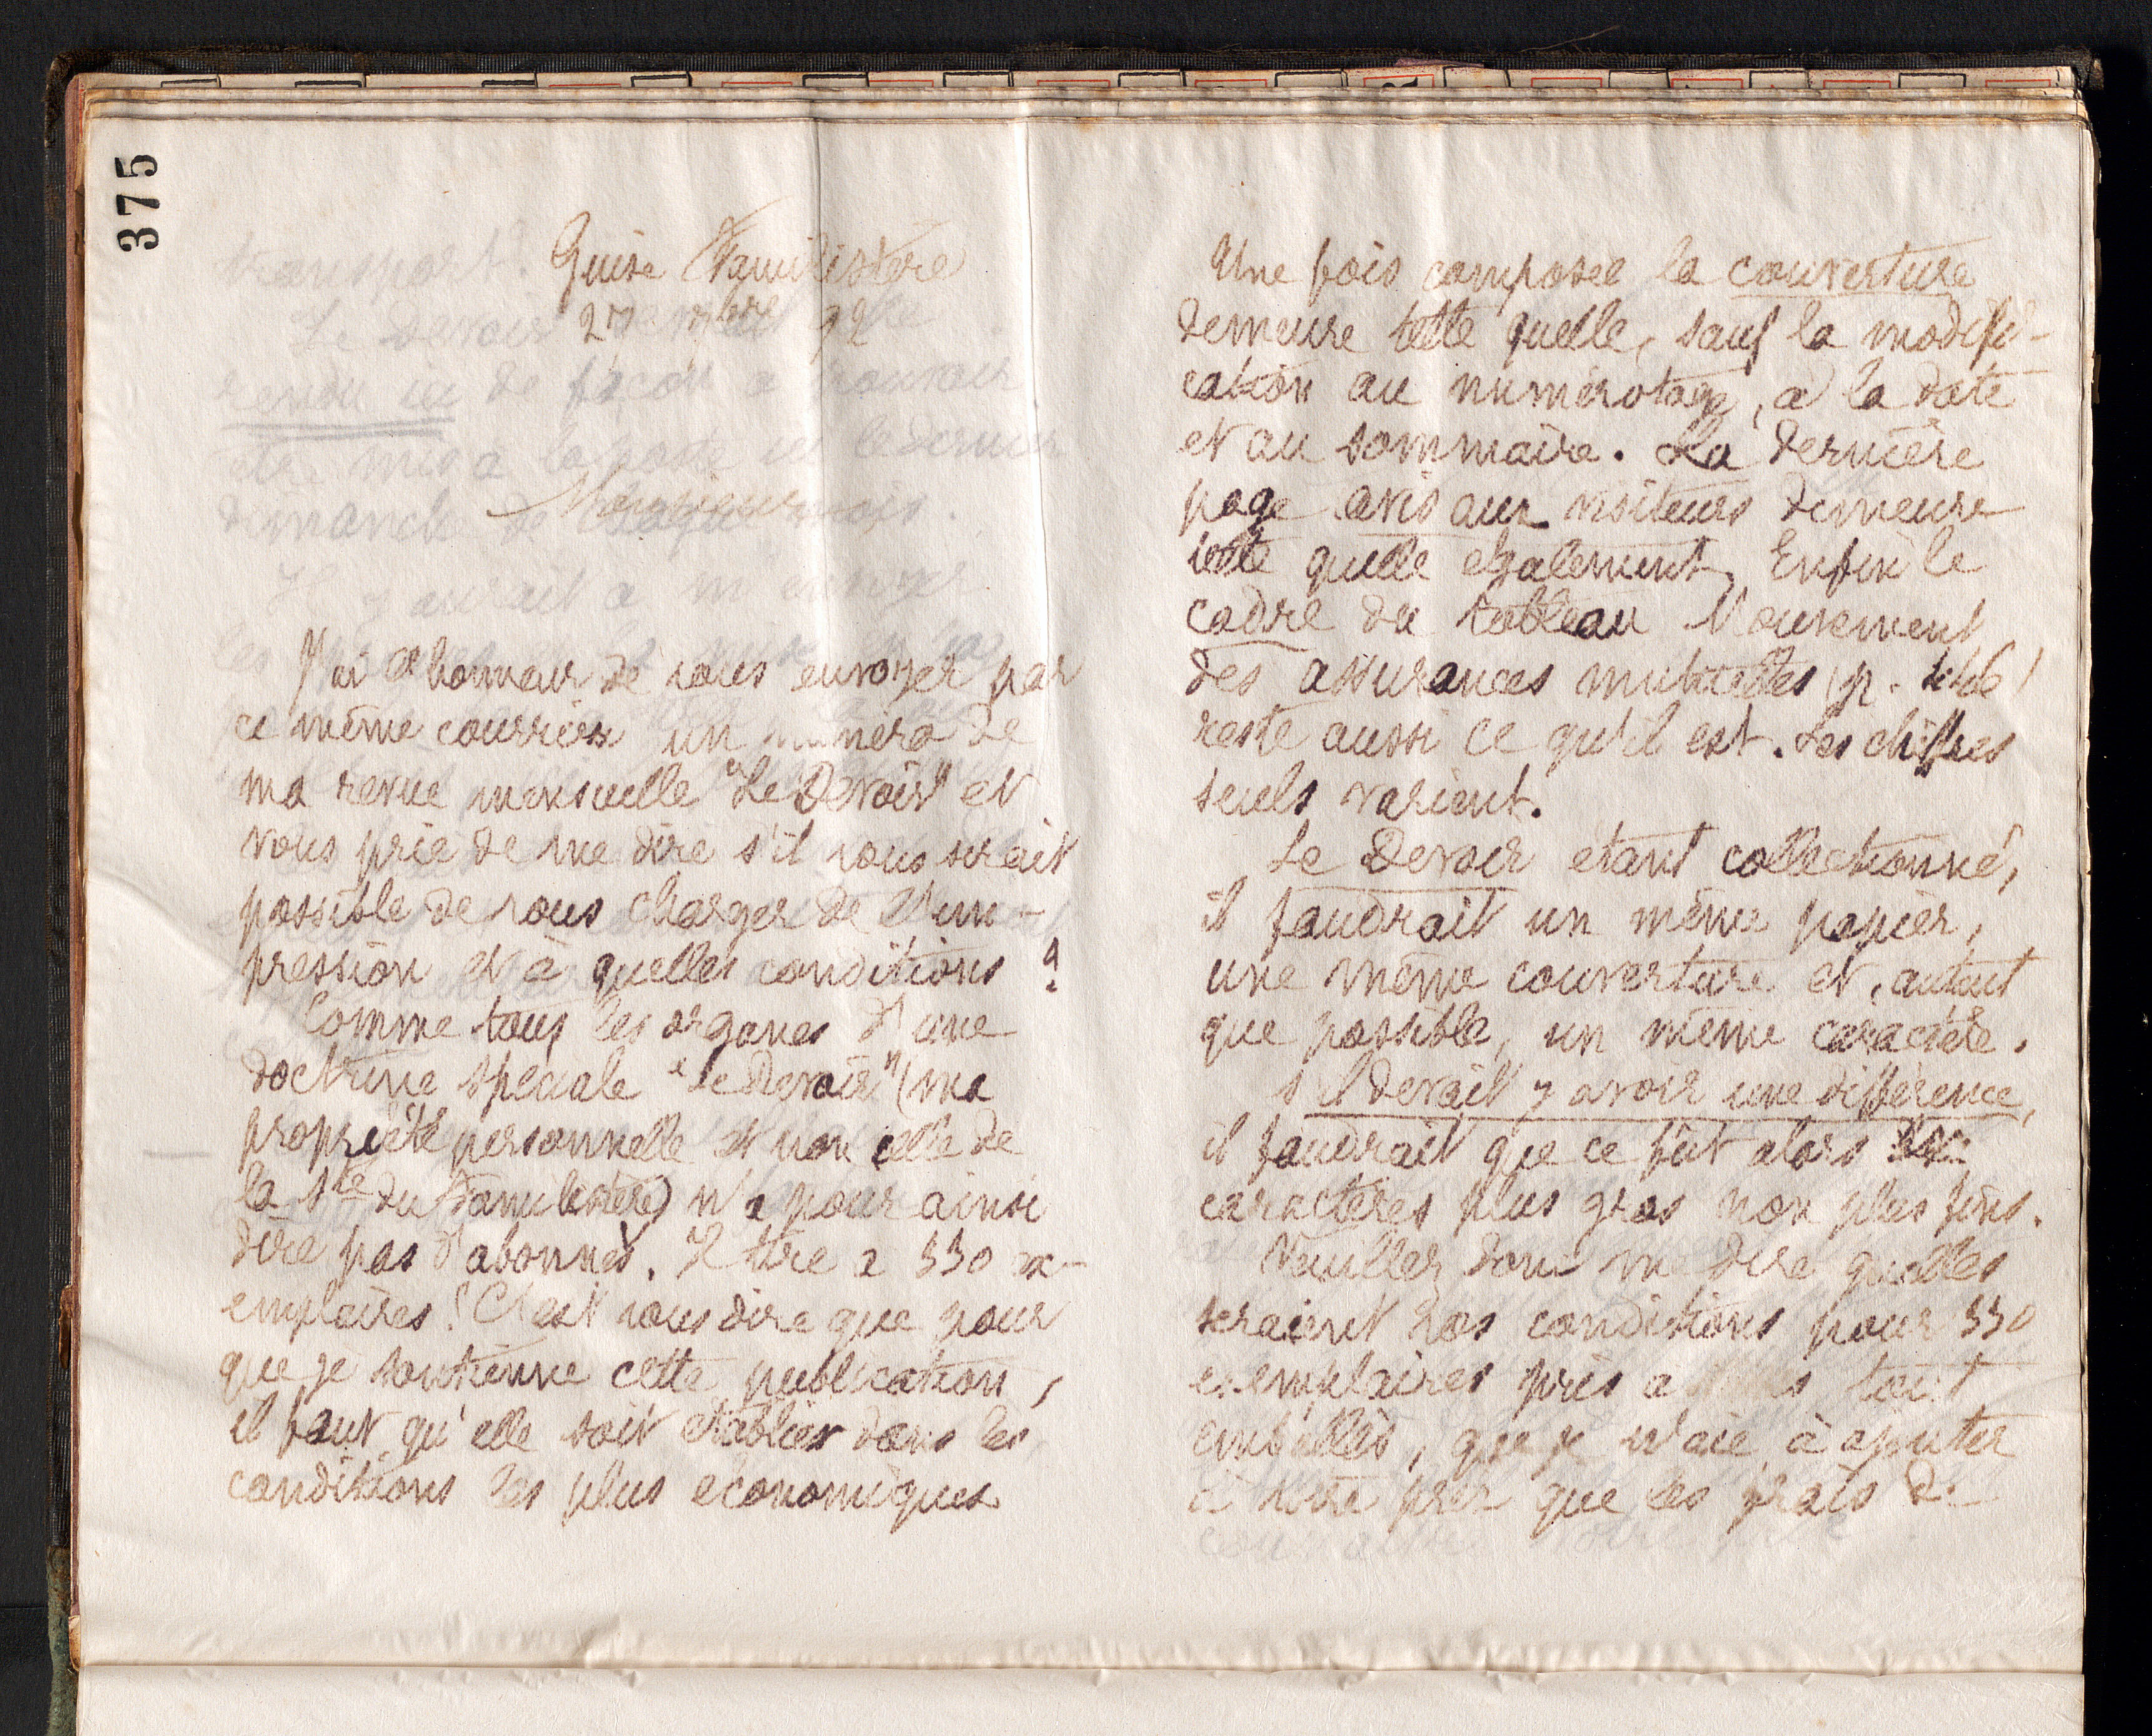 375
Guise Familistère
27 7bre 92
Monsieur
J'ai l'honneur de vous envoyer par
ce même courrier un numéro de
ma revue mensuelle "Le Devoir" et
vous prie de me dire s'il vous serait
possible de vous charger de l'im-
pression et à quelles conditions ?
Comme tous les organes d'une
doctrine spéciale "Le Devoir" (ma
propriété personnelle et non celle de
la Sté du Familistère) n'a pour ainsi
dire pas d'abonnés. Il tire à 330 ex-
emplaires ! C'est vous dire que pour
que je soutienne cette publication,
il faut qu'elle soit établie dans les
conditions les plus économiques
Une fois composée la couverture
demeure telle quelle, sauf la modifi-
cation au numérotage, à la date
et au sommaire. La dernière
page avis aux visiteurs demeure
telle quelle également. Enfin le
cadre du tableau Mouvement
des assurances mutuelles (p.
reste aussi ce qu'il est. Les chiffres
seuls varient.
Le Devoir étant collectionné,
il faudrait un même papier,
une même couverture et, autant
que possible, un même caractère.
S'il devait y avoir une différence,
il faudrait que ce fût alors
caractères plus gros non plus fins.
Veuillez donc me dire quelles
seraient vos conditions pour 330
exemplaires pris tout
emballés, que je n'aie à ajouter
à votre prix que les frais de